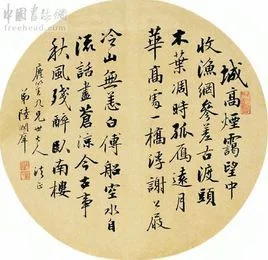 中國書法網
freehead.com
城高煙靄望中
收漁網參差古渡頭
木葉凋時孤雁遠月
華高處一橋浮謝公屐
冷山無恙白傅船空水自
流話盡蒼涼今古事
秋風殘醉臥南樓
九兄世大人法正
弟陸潤庠